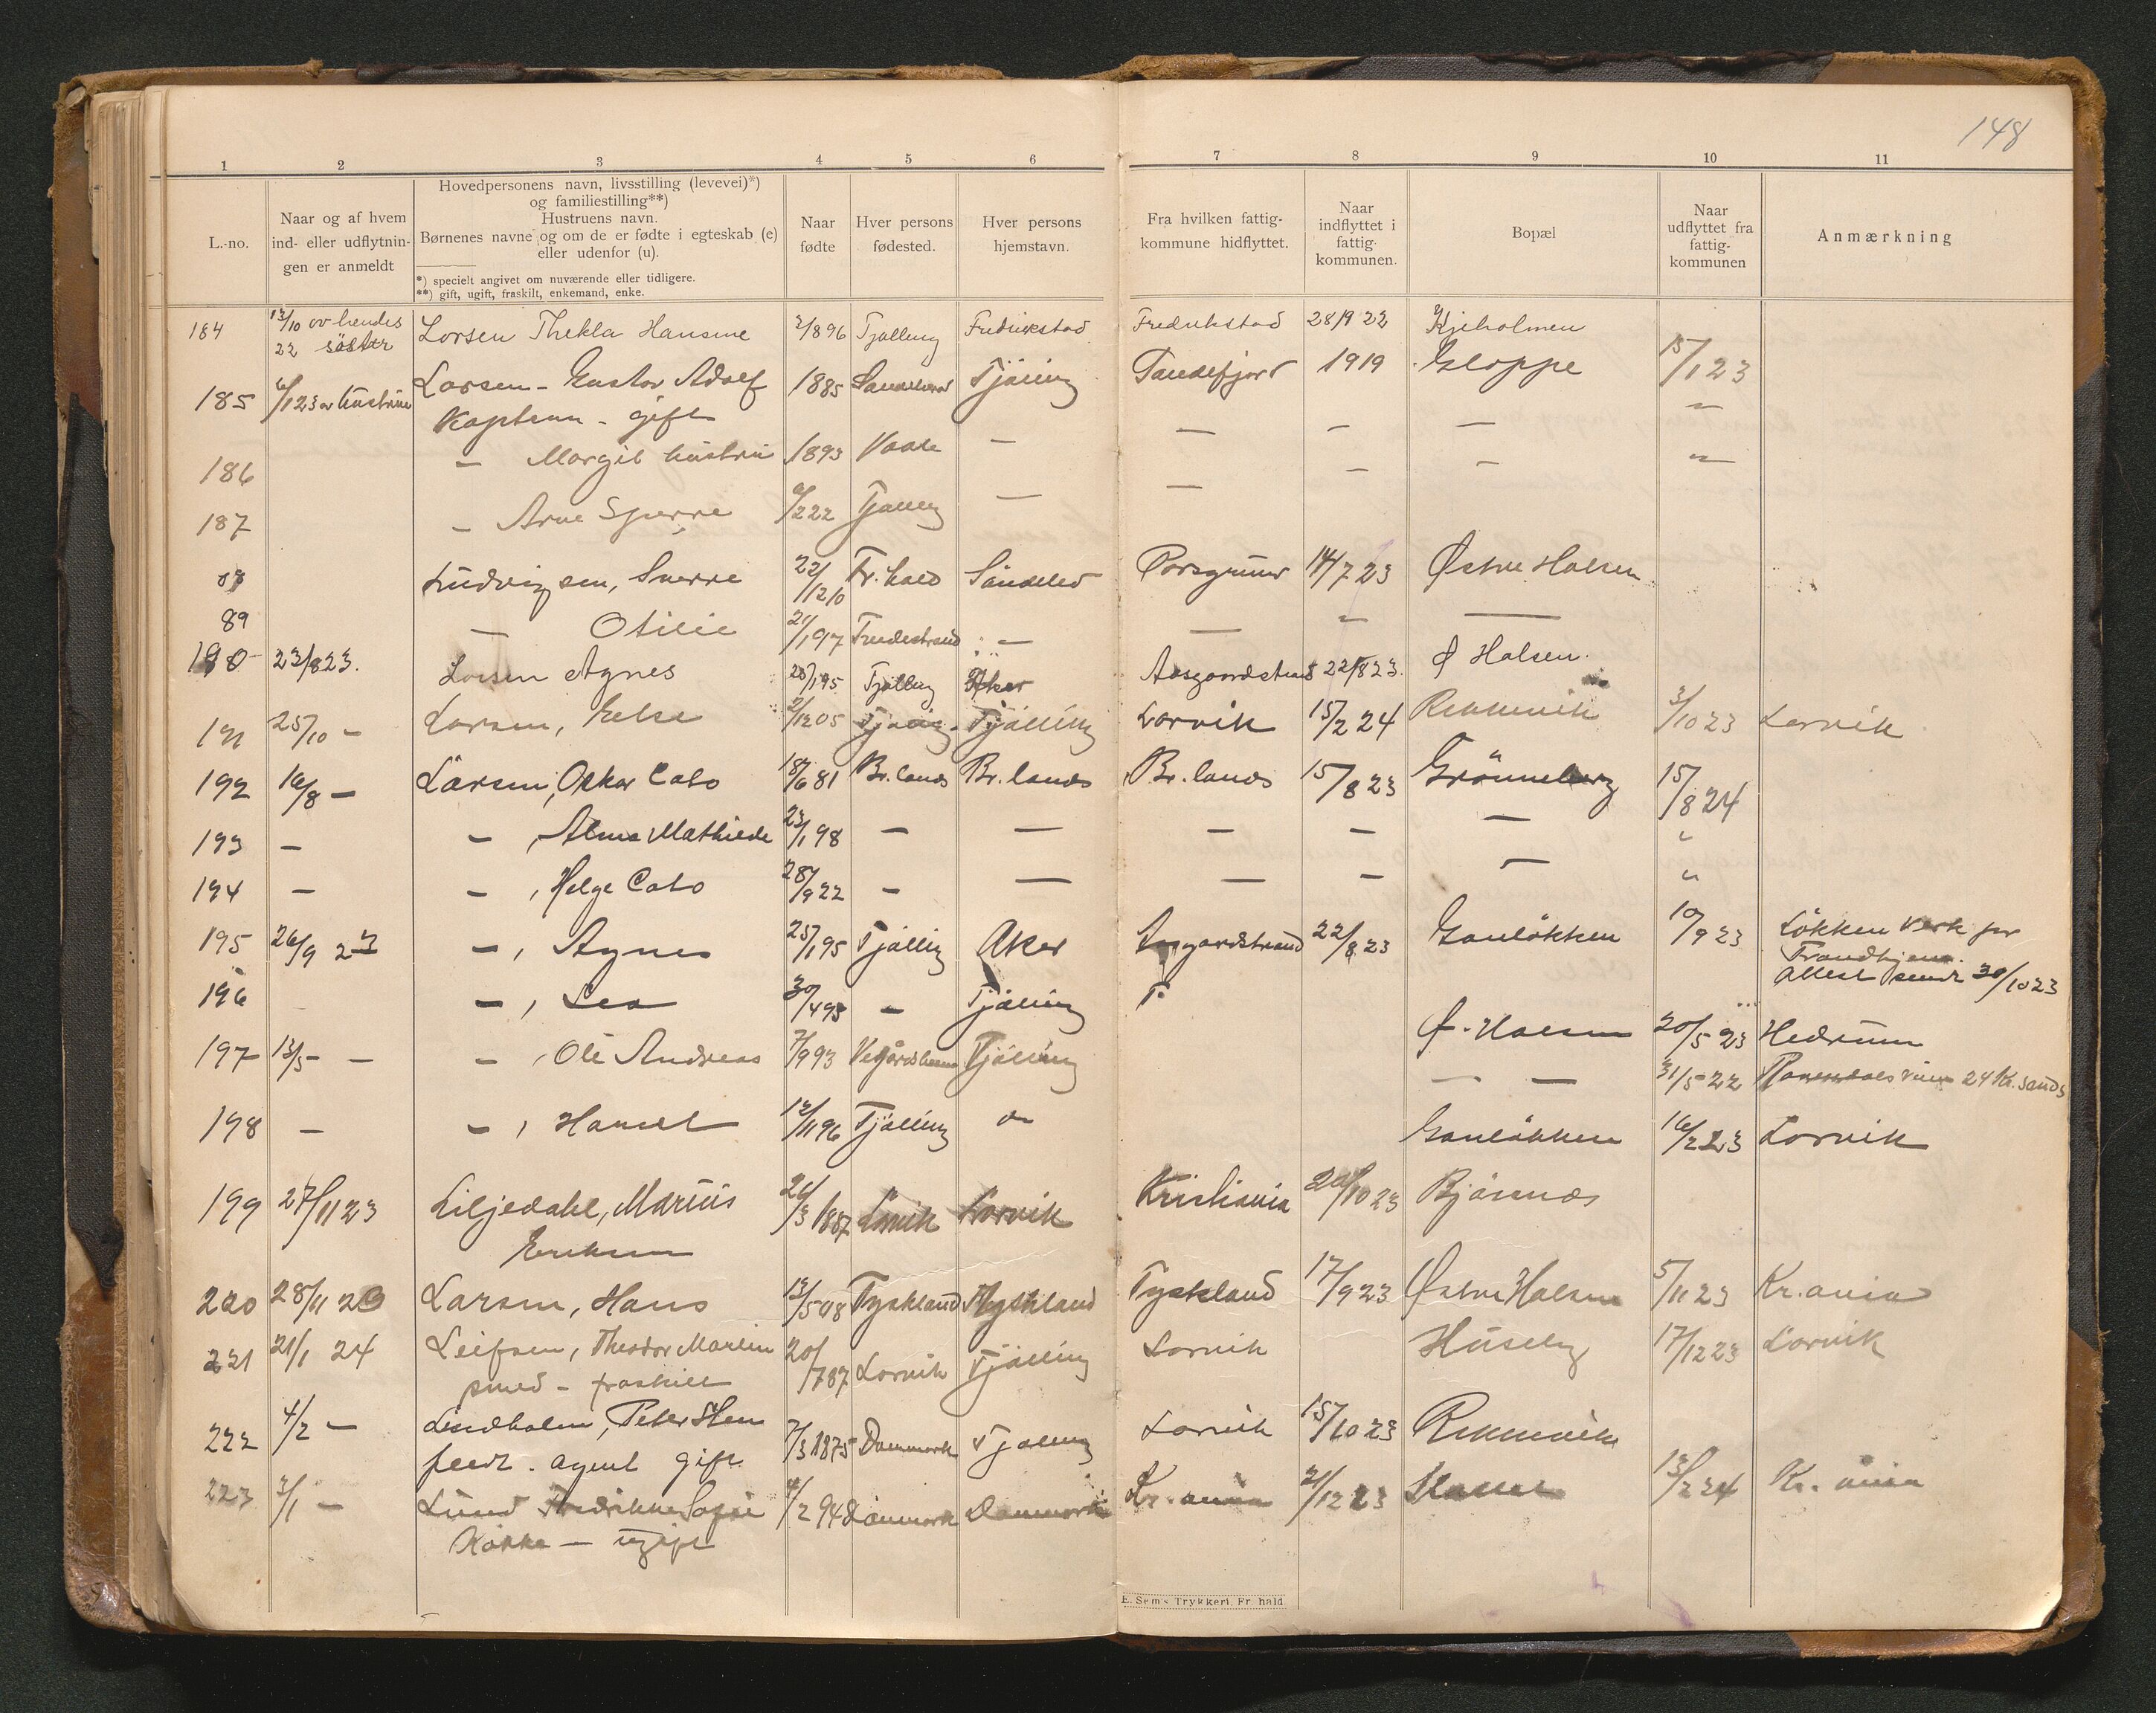 148
1 2 3 4 5 6 7 8 9 10 11
L.-no.
Naar og af hvem
ind- eller udflytnin-
gen er anmeldt
Hovedpersonens navn, livsstilling (levevei)*)
og familiestilling**)
Hustruens navn.
Børnenes navne og om de er fødte i egteskab (e)
eller udenfor (u).
*) specielt angivet om nuværende eller tidligere.
**) gift, ugift, fraskilt, enkemand, enke.
Naar
fødte
Hver persons
fødested.
Hver persons
hjemstavn.
Fra hvilken fattig-
kommune hidflyttet.
Naar
indflyttet i
fattig-
kommunen.
Bopæl
Naar
udflyttet fra
fattig-
kommunen
Anmærkning
184 13/10 22 av hendes søster Larsen Thekla Hansine 2/896 Tjølling Fredrikstad Fredrikstad 28/9 22 Kjeholmen
185 6/1 23 av hustruen Larsen - Gustav Adolf 1885 Tjølling 1919 Gloppe 15/1 23
Kaptein - gift — — — "
186 — Margit hustru 1893 Vaale — — — "
187 — Arne Sperre 222 Tjølling — —
88 Ludvigsen, Sverre 22/12 0 Fr.hald Søndeled Porsgrund 14/7 23 Østre Halsen
89 — Otilie 21/1 97 — — — —
190 23/8 23. Larsen Agnes 25/1 95 Tjølling Aker Aasgaardstrand 22/8 23. Ø Halsen.
191 25/10 — Larsen, Else 2/12 05 Tjølling Tjølling Larvik 15/2 24 Rekkevik 3/10 23 Larvik
192 16/8 — Larsen, Oskar Cato 18/6 81 Br.lanes Br.lanes Br.lanes 15/8 23 Grønneberg 15/8 24
193 — — , Alma Mathilde 23/1 98 — — — — — "
194 — — , Helge Cato 28/9 22 — — — — — "
195 26/9 23 — , Agnes 25/1 95 Tjølling Aker Aasgaardstrand 22/8 23 Gonløkken 10/9 23 Løkken Verk pr
Trondhjem.
Attest sendt 30/10 23
196 — , Lea 30/4 95 — Tjølling T.
Ø. Halsen 20/5 23 Hedrum
197 13/5 — — , Ole Andreas 7/9 93 Vegårdsheien Tjølling — — 31/5 22 24 Kr.sands
198 — — , Harald 12/11 96 Tjølling — Gonløkken 16/2 23 Larvik
199 27/11 23 Liljedahl, Marius 26/3 1887 Larvik Larvik Kristiania 10 23 Bjønnes
Eriksen
220 28/11 23 Larsen, Hans 12/5 08 Tyskland Tyskland Tyskland 17/9 23 Østre Halsen 5/11 23 Kr.ania
221 21/1 24 Leifsen, Theodor Martin 20/7 87 Larvik Tjølling Larvik Huseby 17/12 23 Larvik
smed - fraskilt
222 4/2 — Lindholm, Peter Sten 7/3 1875 Danmark Tjølling Larvik 15/10 23 Rekkevik
feldt. agent gift
223 3/1 — Lund Fredrikke Sofie 4/2 94 Danmark Danmark Kr. ania 21/12 23 13/2 24 Kr. ania
Kokke — ugift
E. Sem's Trykkeri, Fr.hald.